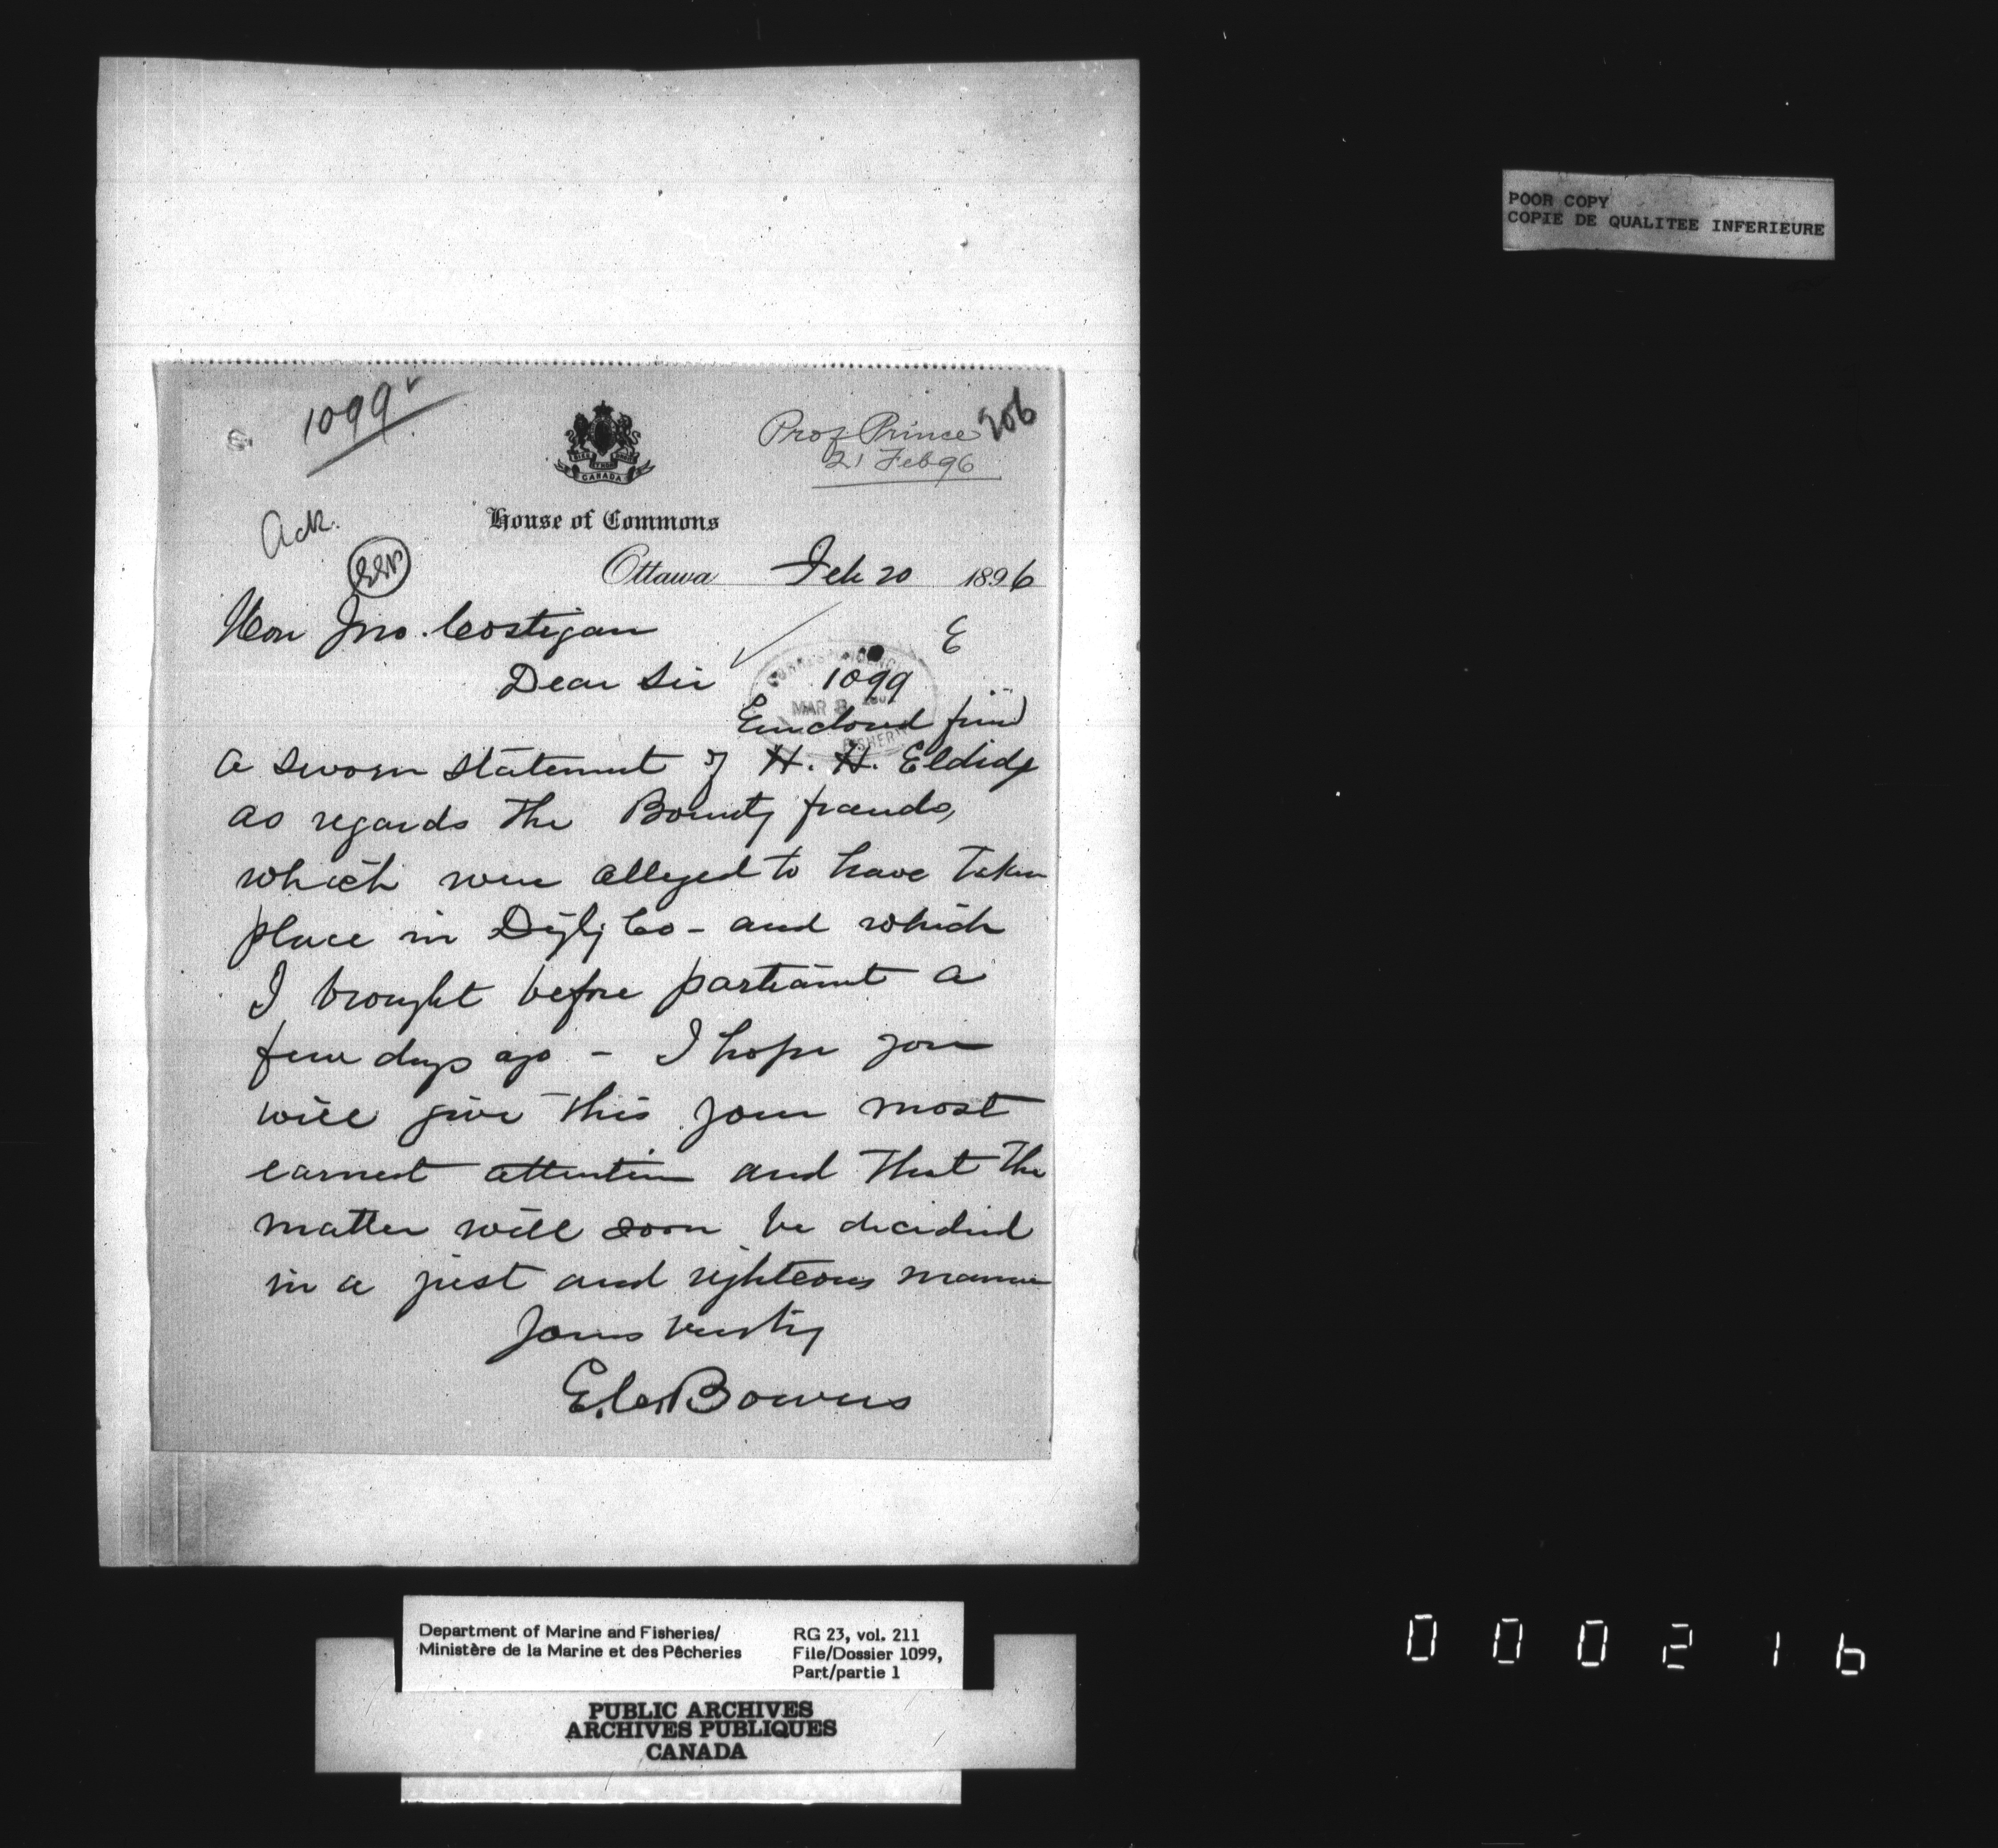 POOR COPY
COPIE DE QUALITEE INFERIEURE
1099
Prof Prince
206
21 Feb 96
CANADA
House of Commons
Ack.
Ottawa Feb 20 1896
Hon Jno. Costigan
E
Dear Sir
1099
MAR 3
Enclosed find
a sworn statement of H. H. Eldidge
as regards the Bounty frauds,
which were alleged to have taken
place in Digby Co - and which
I brought before parliament a
few days ago - I hope you
will give this your most
earnest attention and that the
matter will soon be decided
in a just and righteous manner
Yours truly
E. C. Bowers
Department of Marine and Fisheries/
Ministère de la Marine et des Pêcheries
RG 23, vol. 211
File/Dossier 1099,
Part/partie 1
PUBLIC ARCHIVES
ARCHIVES PUBLIQUES
CANADA
000216